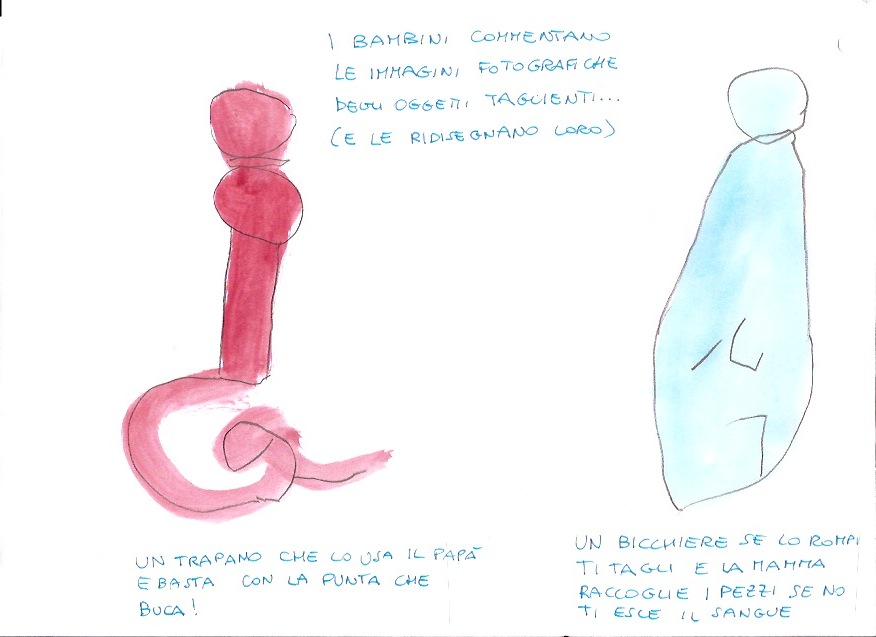 I BAMBINI COMMENTANO
LE IMMAGINI FOTOGRAFICHE
DEGLI OGGETTI TAGLIENTI...
(E LE RIDISEGNANO LORO)
UN TRAPANO CHE LO USA IL PAPÀ
E BASTA CON LA PUNTA CHE
BUCA!
UN BICCHIERE SE LO ROMPI
TI TAGLI E LA MAMMA
RACCOGLIE I PEZZI SE NO
TI ESCE IL SANGUE